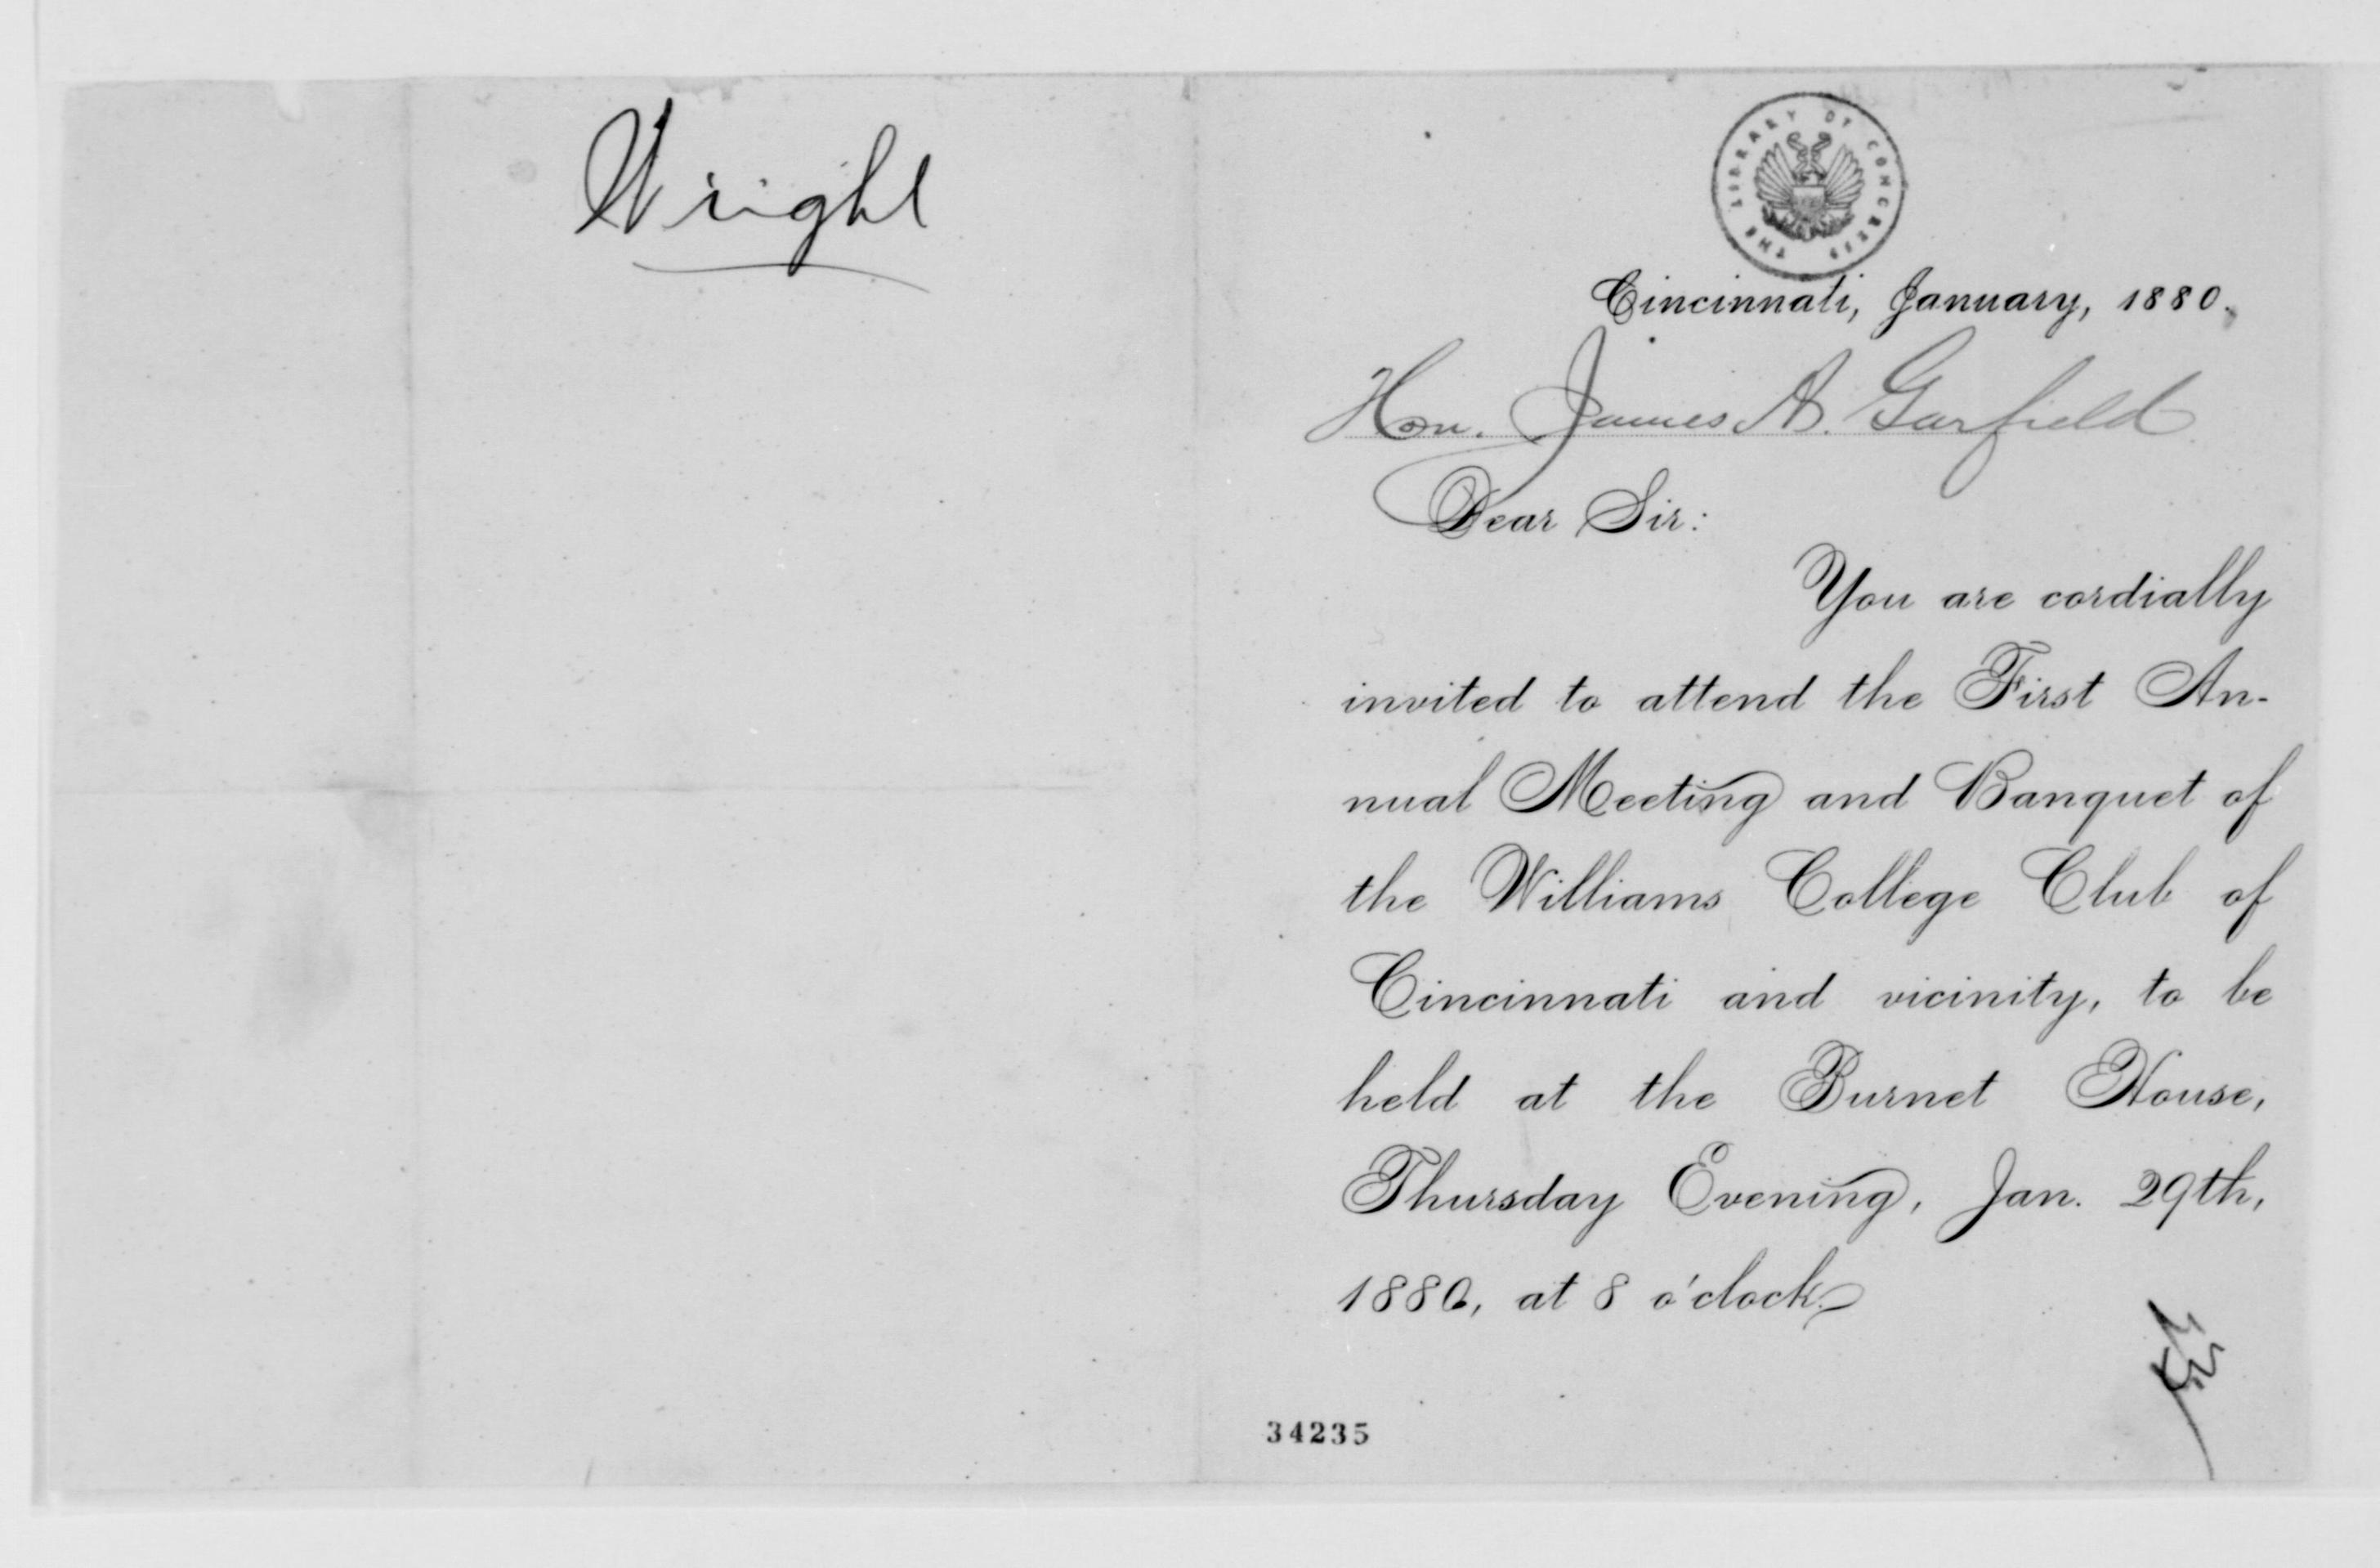 Wright
THE LIBRARY OF CONGRESS
Cincinnati, January, 1880.
Hon. James A. Garfield
Dear Sir:
You are cordially
invited to attend the First An-
nual Meeting and Banquet of
the Williams College Club of
Cincinnati and vicinity, to be
held at the Burnet House,
Thursday Evening, Jan. 29th,
1880, at 8 o'clock.
34235